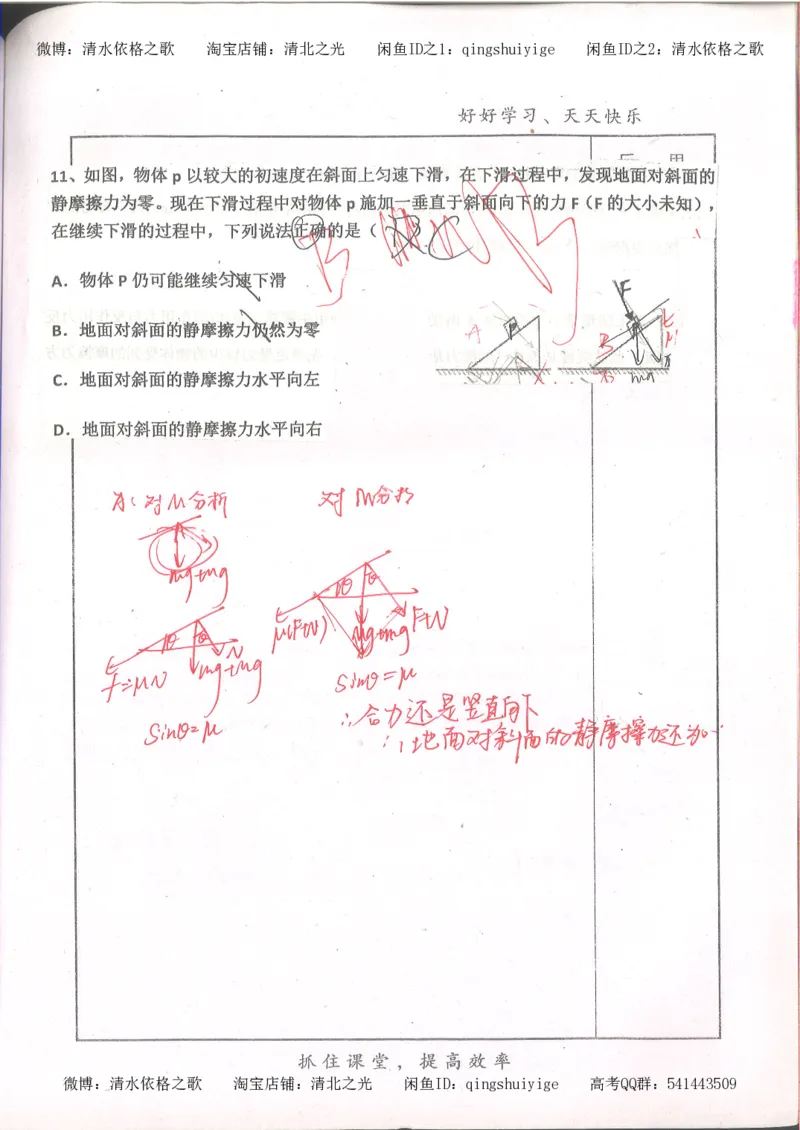 微博：清水依格之歌 淘宝店铺：清北之光 闲鱼ID之1：qingshuiyige 闲鱼ID之2：清水依格之歌
好好学习、天天快乐
11、如图，物体 p 以较大的初速度在斜面上匀速下滑，在下滑过程中，发现地面对斜面的
静摩擦力为零。现在下滑过程中对物体 p 施加一垂直于斜面向下的力 F（F 的大小未知），
在继续下滑的过程中，下列说法正确的是（
A．物体 P 仍可能继续匀速下滑
B．地面对斜面的静摩擦力仍然为零
C．地面对斜面的静摩擦力水平向左
D．地面对斜面的静摩擦力水平向右
F
A
P
B
mg
对M分析
对M分析
mg+Mg
θ θ
N
f=μN
mg+Mg
sinθ=μ
θ θ
μ(F+N)
F+N
Mg+mg
sinθ=μ
∴合力还是竖直向下
∴地面对斜面的静摩擦力还为0
抓住课堂，提高效率
微博：清水依格之歌 淘宝店铺：清北之光 闲鱼ID：qingshuiyige 高考QQ群：541443509